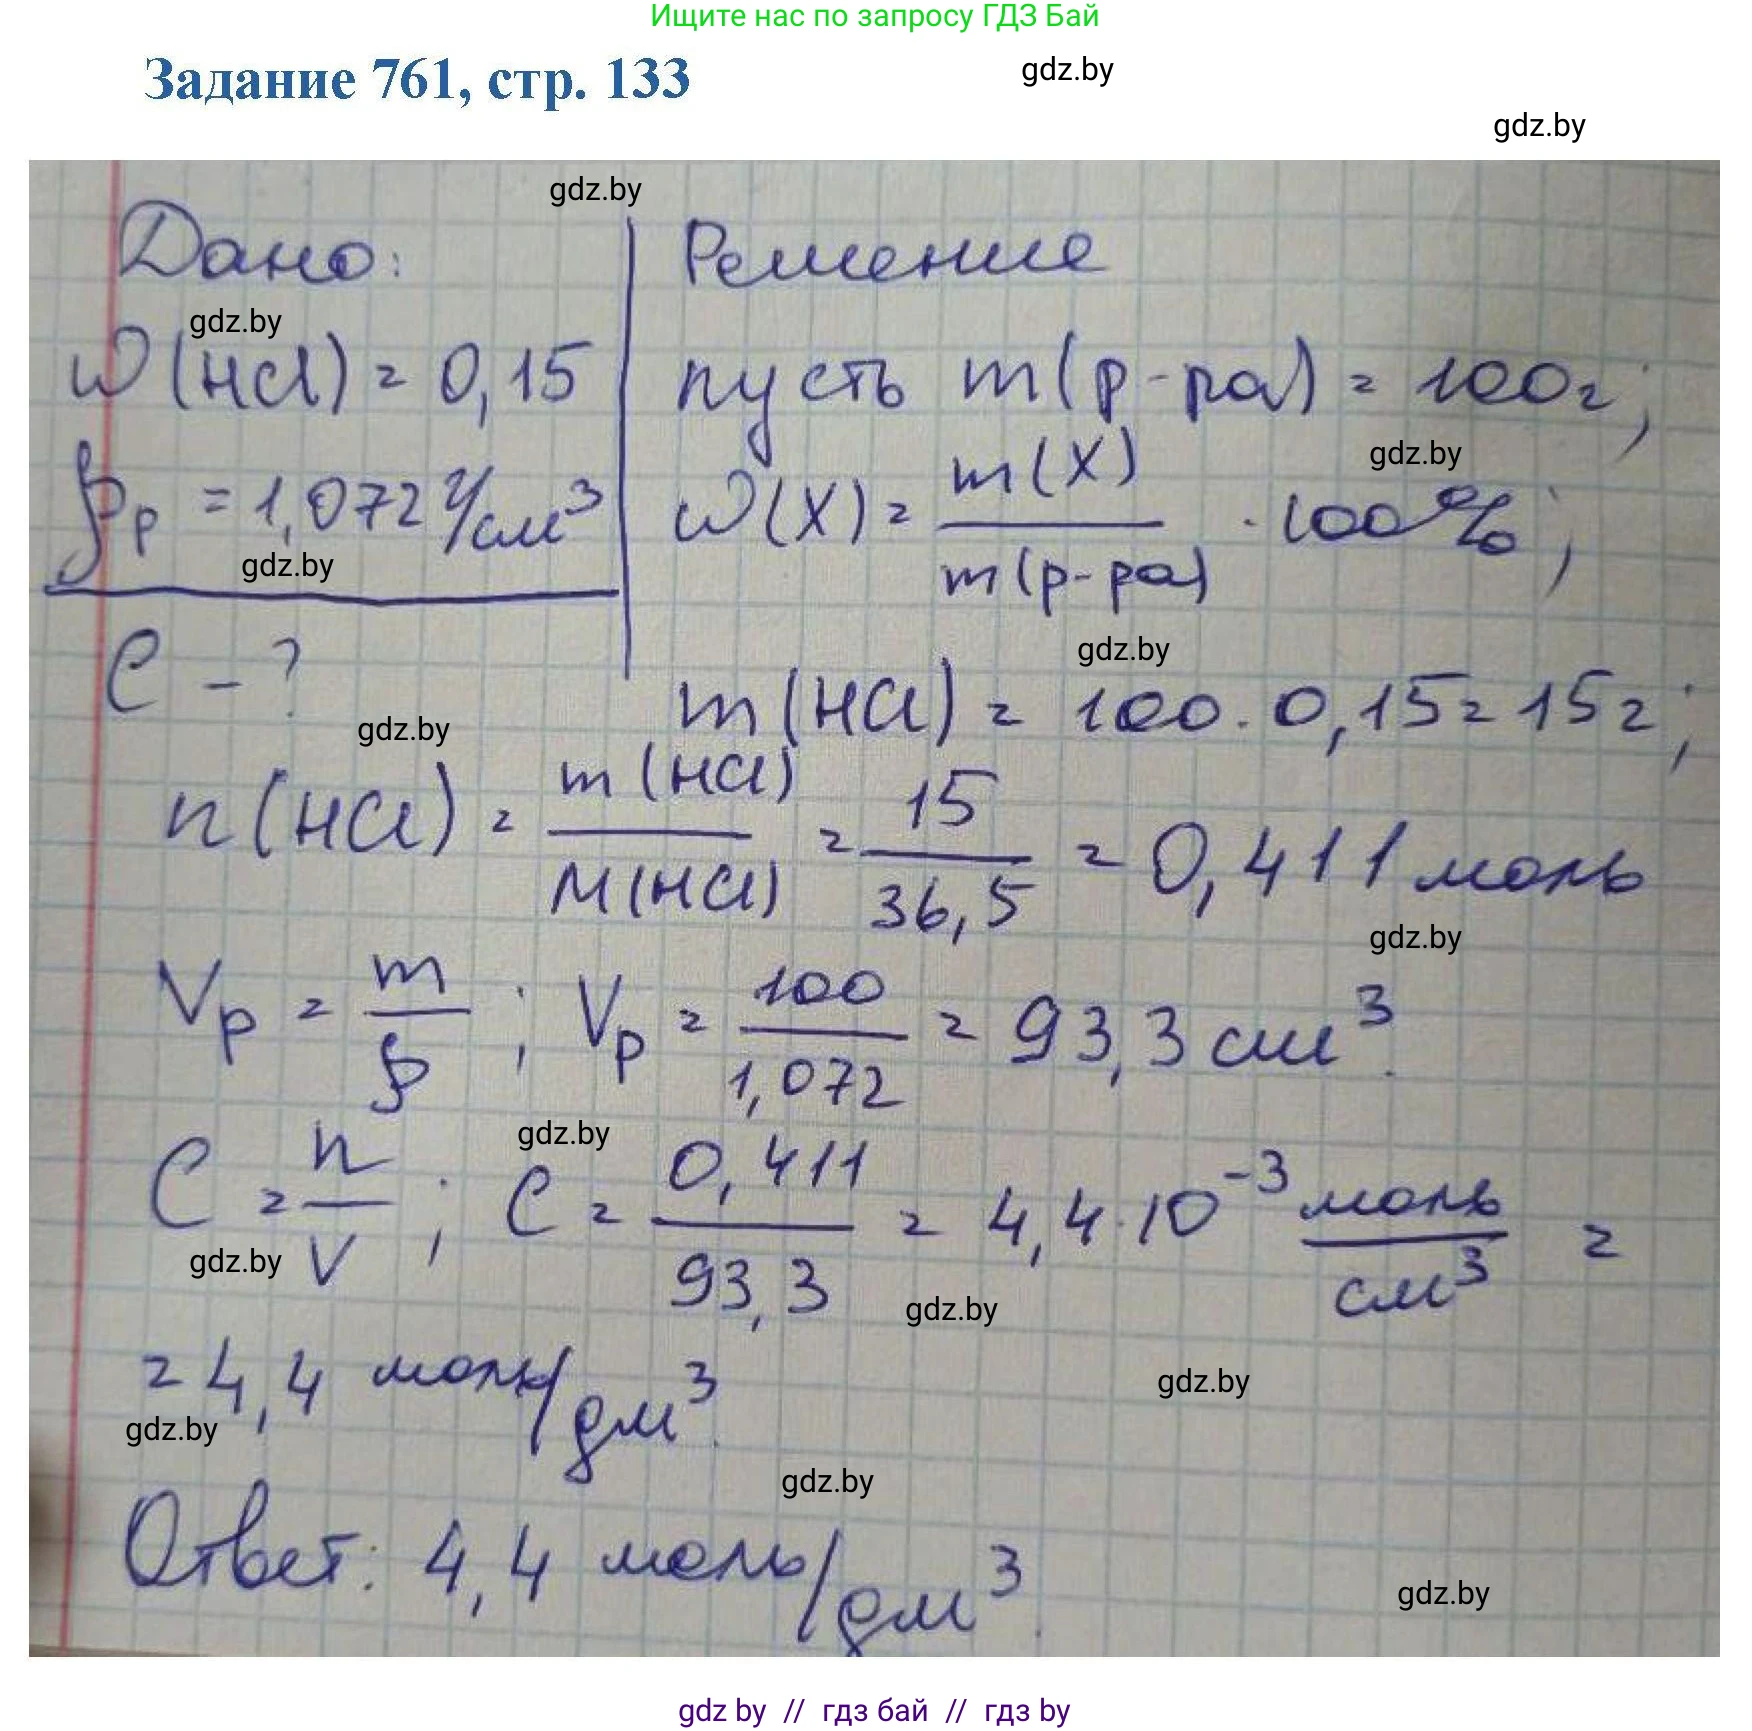 Ищите нас по запросу ГДЗ Бай
Задание 761, стр. 133
gdz.by
gdz.by
gdz.by
Дано:
Решение
gdz.by
ω(HCl) = 0,15
пусть m(р-ра) = 100г;
ρр = 1,072 г/см³
gdz.by
ω(X) = m(X) / m(р-ра) · 100%;
gdz.by
C - ?
gdz.by
m(HCl) = 100 · 0,15 = 15г;
gdz.by
n(HCl) = m(HCl) / M(HCl) = 15 / 36,5 = 0,411 моль
gdz.by
Vр = m / ρ; Vр = 100 / 1,072 = 93,3 см³.
gdz.by
C = n / V; C = 0,411 / 93,3 = 4,4·10⁻³ моль / см³ =
gdz.by
gdz.by
= 4,4 моль/дм³.
gdz.by
gdz.by
gdz.by
Ответ: 4,4 моль/дм³.
gdz.by
gdz by // гдз бай // гдз by